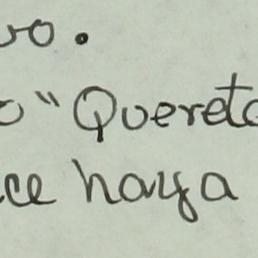 vo.
o "Quereta
ce haya